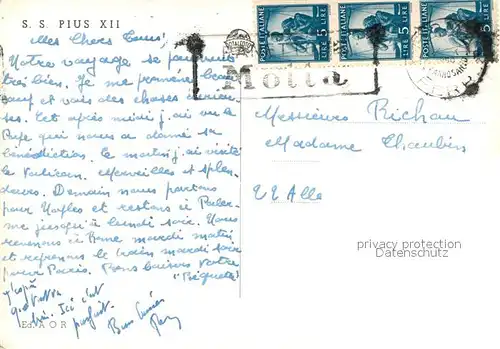 S. S. PIUS XII
Mes Chers Tous,
Notre voyage se poursuit
très bien. Je me promène beau-
coup et vois des choses curieu-
ses. Cet après midi j'ai vu le
Pape qui nous a donné sa
bénédiction. Le matin j'ai visité
le Vatican. Merveilles et splen-
deurs. Demain nous partons
pour Naples et restons à Paler-
me jusqu'à lundi soir. Nous
revenons à Rome mardi matin
et reprenons le train mardi soir
pour Paris. Bons baisers Votre
"Briquette"
J'espère
que tout va
bien. Ici c'est
parfait.
Ed. A O R
Motta
POSTE ITALIANE 5 LIRE
POSTE ITALIANE 5 LIRE
POSTE ITALIANE 5 LIRE
Messieurs Richau
Madame
22 Alle
privacy protection
Datenschutz